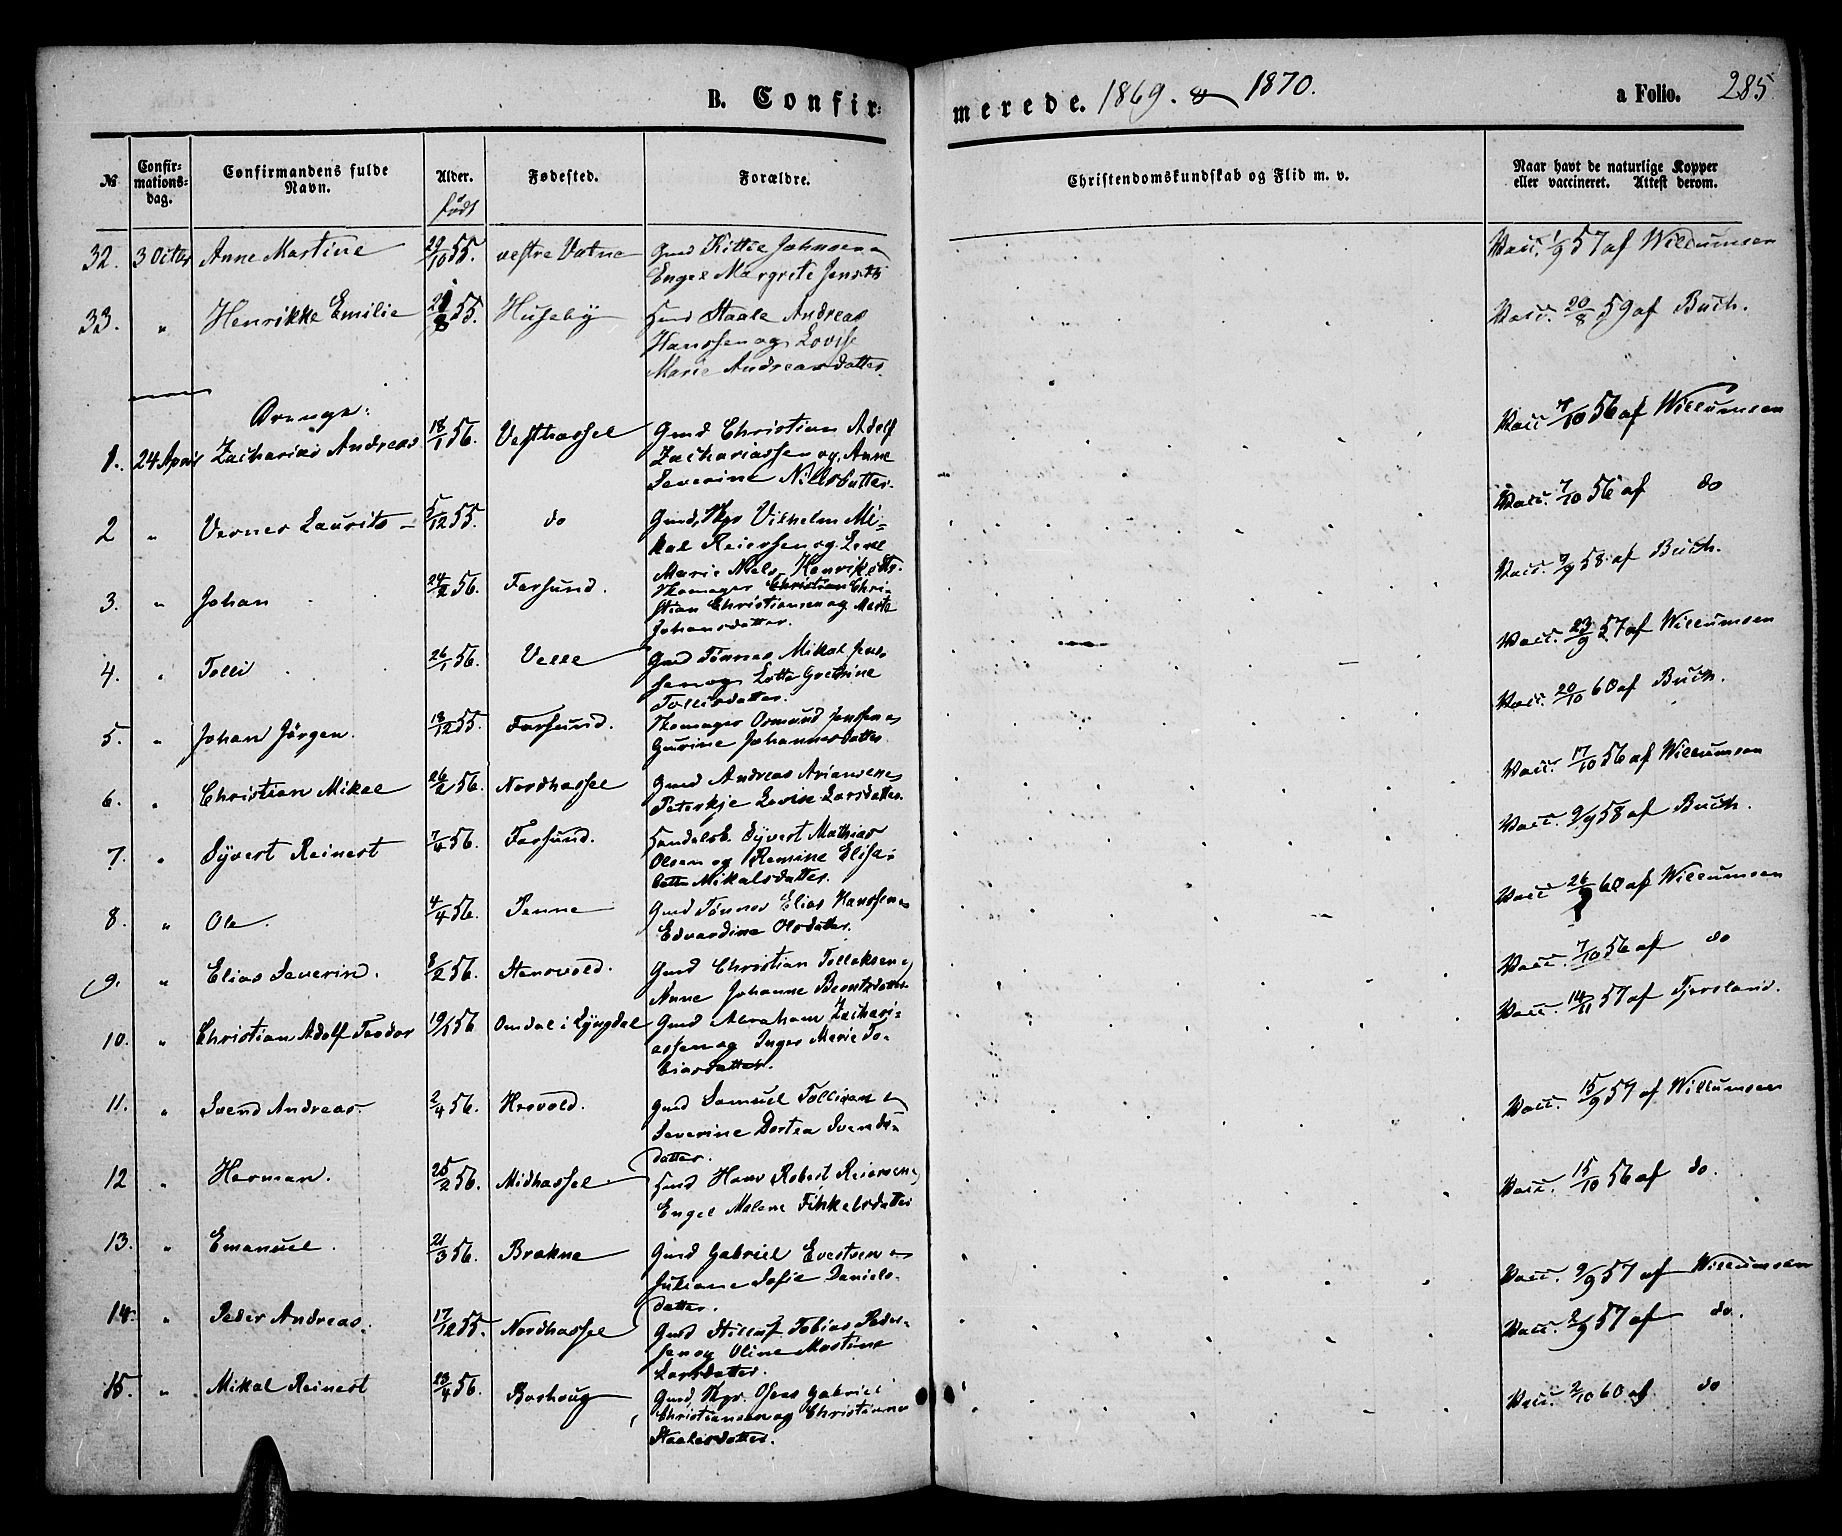 B. Confir-
merede. 1869. & 1870.
a Folio. 285
№
Confir-
mations-
dag.
Confirmandens fulde
Navn.
Alder.
født
Fødested.
Forældre.
Christendomskundskab og Flid m. v.
Naar havt de naturlige Kopper
eller vaccineret. Attest derom.
32. 3 Octbr Anne Martine 29/10 55. vestre Vatne Gmd Kittil Johnsen &
Engel Margrete Jensdtr
Vacc. 1/9 57 af Willumsen
33. " Henrikke Emilie 55. Huseby Hmd Staale Andreas
Hanssen og Lovise
Marie Andreasdatter.
Vacc. 20/8 59 af Buch.
Drenge:
1. 24 April Zacharias Andreas 18/1 56. Vesthassel Gmd Christian Adolf
Zachariassen og Anne
Severine Nilsdatter.
Vacc 7/10 56 af Willumsen
2 " Verner Laurits 5/12 55. do Gmd, Skpr Vilhelm Mi-
kal Reiersen og Lene
Marie Niels Henriksdtr.
Vacc. 7/10 56 af do
3. " Johan 24/2 56. Farsund. Skomager Christian Chri-
stian Christiansen og Marte
Johansdatter.
Vacc. 9/9 58 af Buch.
4. " Tolli 26/1 56. Velle Gmd Tønnes Mikal Jens-
sen og Lotte Gretrine
Tollisdatter.
Vacc. 23/9 57 af Willumsen
5. " Johan Jørgen. 18/12 55. Farsund. Skomager Osmund Jenssen &
Gurine Johannesdatter
Vacc. 20/10 60 af Buch.
6. " Christian Mikal 26/2 56. Nordhassel Gmd Andreas Ariansen &
Peterkje Lovise Larsdatter.
Vacc. 17/10 56 af Willumsen
7. " Syvert Reinert 7/4 56. Farsund. Handelsb. Syvert Mathias
Olsen og Romine Elisa-
beth Mikalsdatter.
Vacc. 9/9 58 af Buch.
8. " Ole. 4/4 56. Penne Gmd Tønnes Elias Hanssen &
Edvardine Olsdatter.
Vacc 60 af Willumsen
9. " Elias Severin. 8/2 56. Stenvold. Gmd Christian Tollaksen &
Anne Johanne Berntsdatter
Vacc. 7/10 56 af do
10. " Christian Adolf Teodor 19/1 56 Omdal i Lyngdal Gmd Abraham Zachari-
assen og Inger Marie To-
biasdatter.
Vacc. 14/11 57 af Tjersland.
11. " Svend Andreas. 2/4 56. Hrevold. Gmd Samuel Tollisen &
Severine Dortea Svends-
datter.
Vacc. 15/9 57 af Willumsen
12 " Herman. 25/2 56. Midhassel Hmd Hans Robert Reiersen &
Engel Malene Finkelsdatter
Vacc. 15/10 56 af do.
13. " Emanuel. 21/3 56. Brekne Gmd Gabriel Evertsen &
Juliane Sofie Daniels-
datter.
Vacc. 9/9 57 af Willumsen
14. " Peder Andreas. 17/12 55. Nordhassel Gmd Stillaf Tobias Peder-
sen og Oline Martine
Larsdatter.
Vacc. 2/9 57 af do.
15. " Mikal Reinert 23/4 56. Borhoug Gmd, Skpr. Oseas Gabriel
Christiansen og Christianne
Staalesdatter.
Vacc. 2/10 60 af do